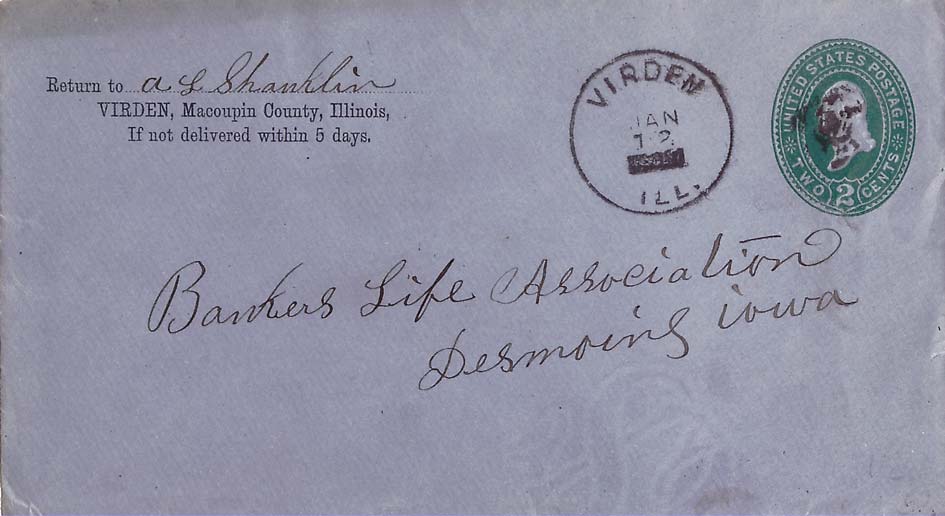 Return to A L Shanklin
VIRDEN, Macoupin County, Illinois,
If not delivered within 5 days.
VIRDEN
JAN
12
ILL.
UNITED STATES POSTAGE
TWO 2 CENTS
Bankers Life Association
Desmoins iowa